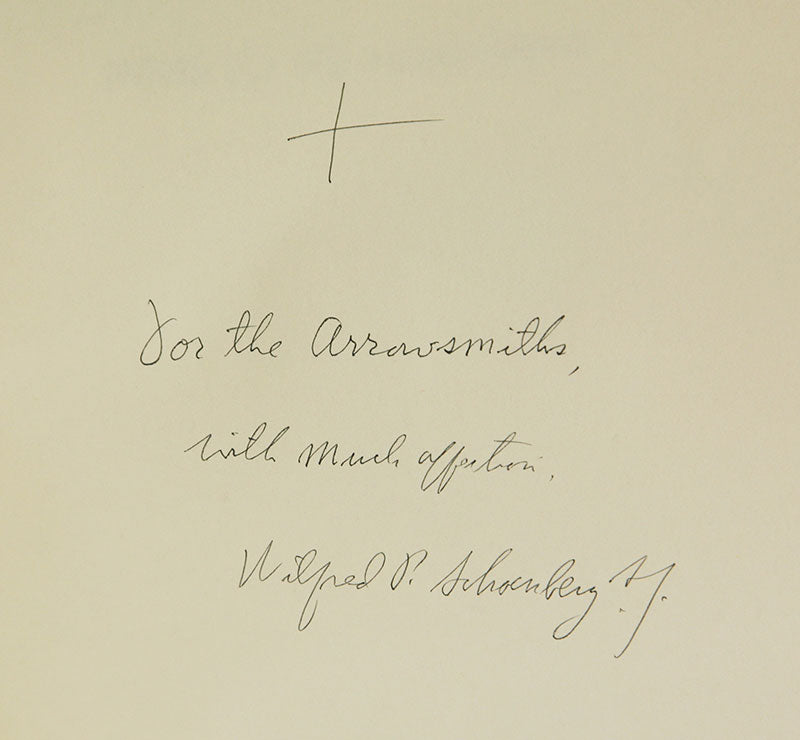 For the Arrowsmiths,
with much affection,
Wilfred P. Schoenberg S.J.